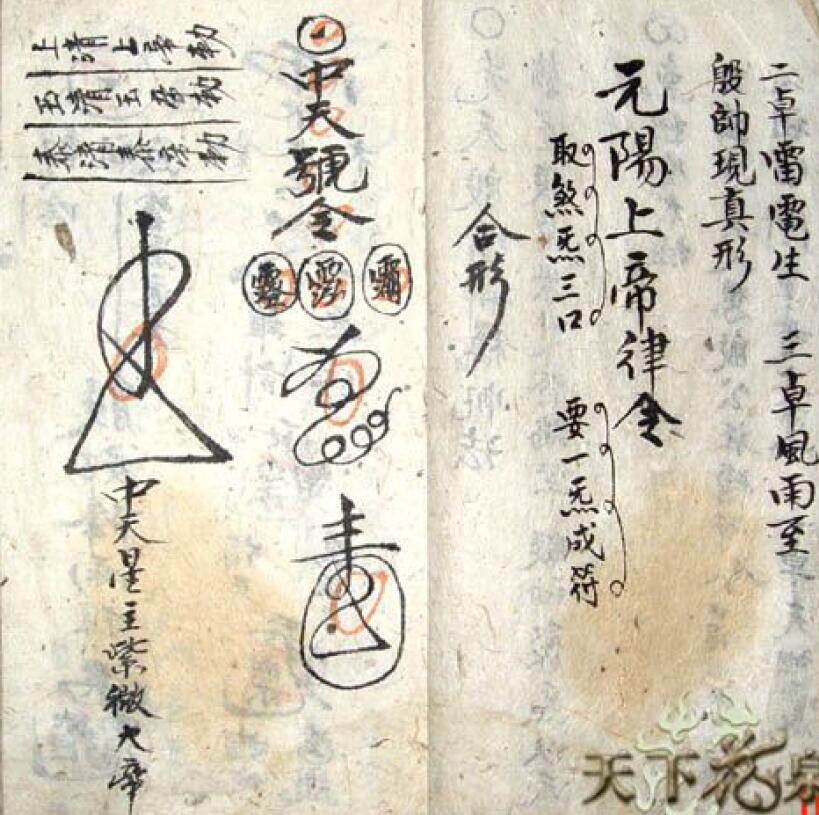 二卓雷電生　三卓風雨至
殷帥現真形
元陽上帝律令
取煞炁三口　要一炁成符
合形
中天號令
上清上帝勅
玉清玉帝勅
泰清泰帝勅
中天星主紫微大帝
天下花泉